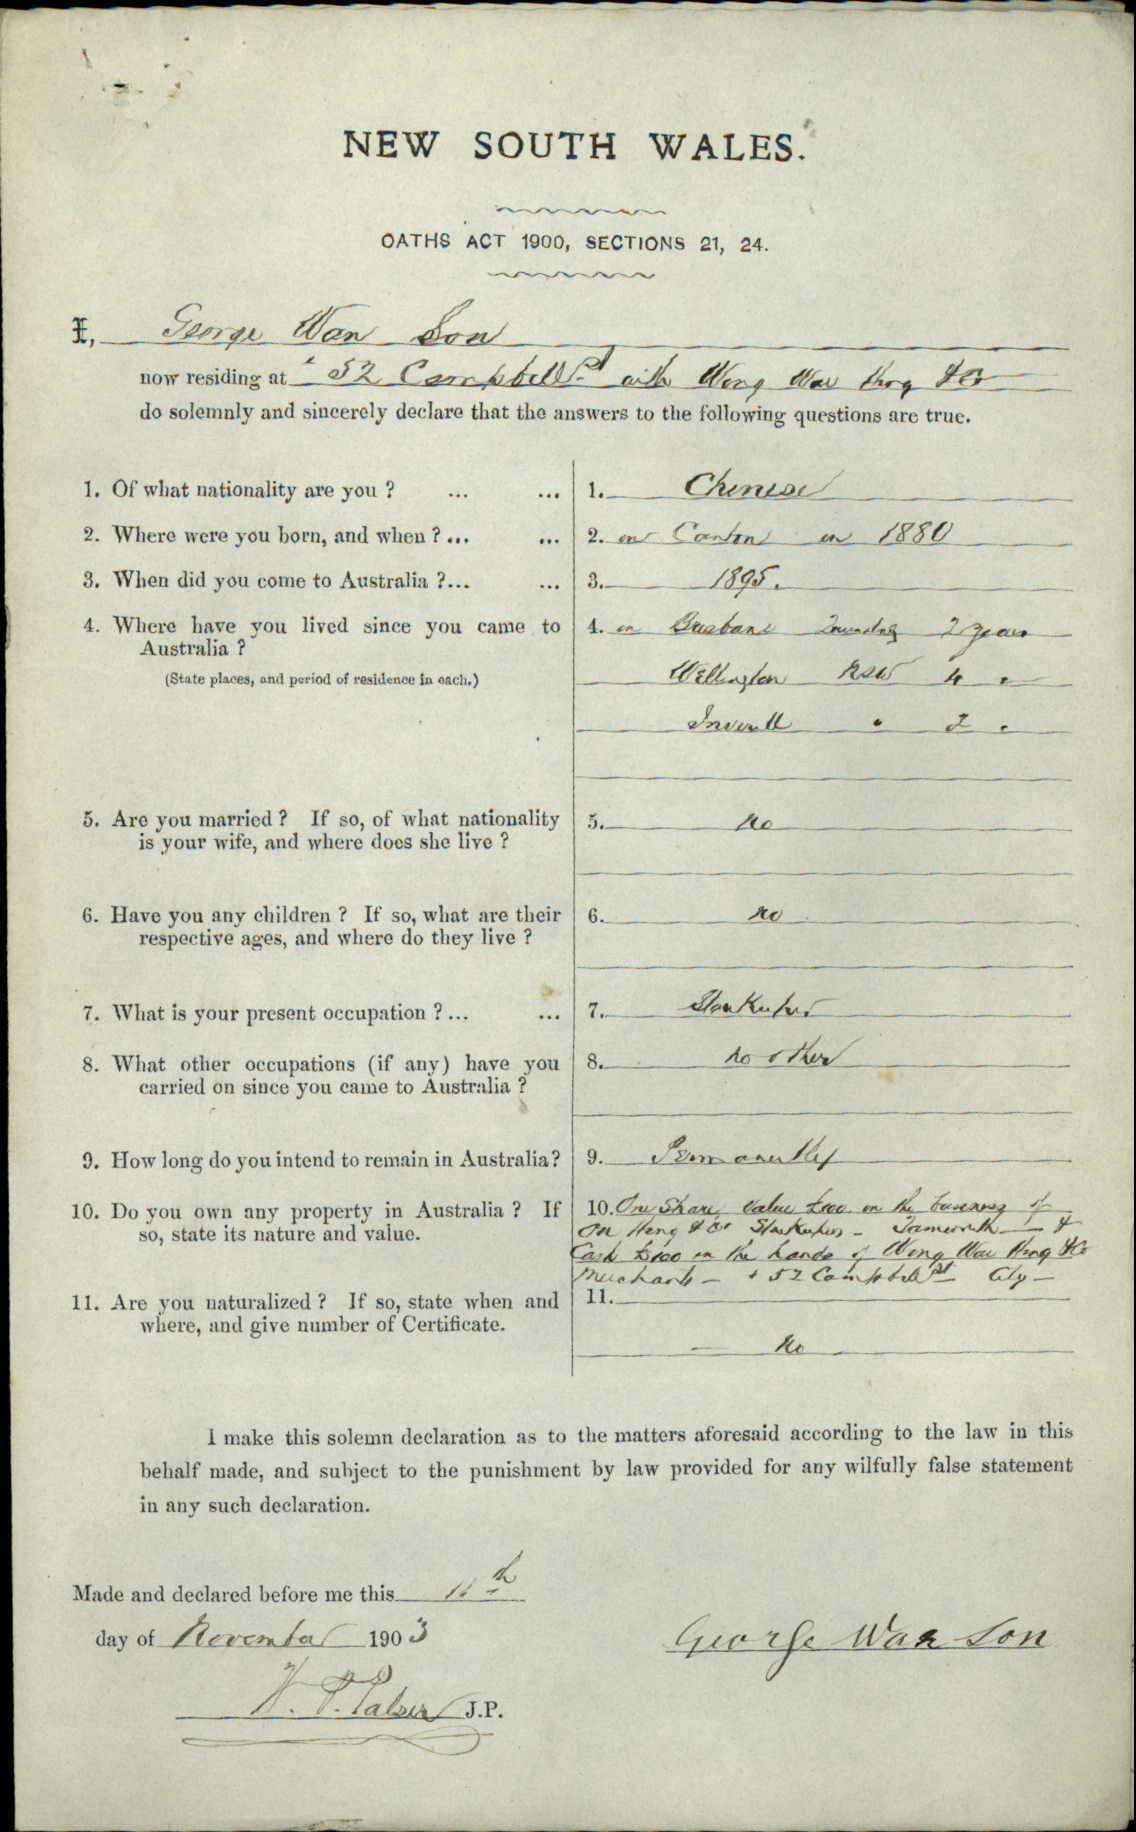 NEW SOUTH WALES.
OATHS ACT 1900, SECTIONS 21, 24.
I, George Wan Son
now residing at 52 Campbell St with Wong Wai Hong & Co
do solemnly and sincerely declare that the answers to the following questions are true.
1. Of what nationality are you ? ... ... 1. Chinese
2. Where were you born, and when ? ... ... 2. in Canton in 1880
3. When did you come to Australia ?... ... 3. 1895.
4. Where have you lived since you came to 4. in Brisbane 2 years
Australia ?
(State places, and period of residence in each.) Wellington NSW 4 "
Inverell " 2 "
5. Are you married ? If so, of what nationality 5. No
is your wife, and where does she live ?
6. Have you any children ? If so, what are their 6. no
respective ages, and where do they live ?
7. What is your present occupation ? ... ... 7. Storekeeper
8. What other occupations (if any) have you 8. no other
carried on since you came to Australia ?
9. How long do you intend to remain in Australia? 9. Permanently
10. Do you own any property in Australia ? If 10. One Share value £100 in the business of
so, state its nature and value. On Hing & Co Storekeepers - Tamworth - &
Cash £100 in the hands of Wong Wai Hong & Co
Merchants - 52 Campbell St City -
11. Are you naturalized ? If so, state when and 11.
where, and give number of Certificate.
No
I make this solemn declaration as to the matters aforesaid according to the law in this
behalf made, and subject to the punishment by law provided for any wilfully false statement
in any such declaration.
Made and declared before me this 11th
day of November 1903
George Wan Son
W. P. Palser J.P.